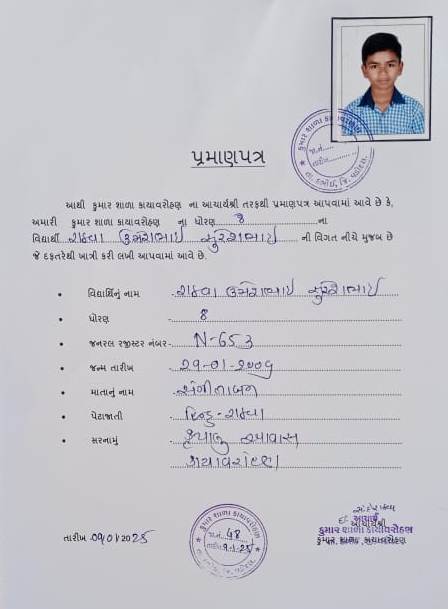 પ્રમાણપત્ર
આથી કુમાર શાળા કાયાવરોહણ ના આચાર્યશ્રી તરફથી પ્રમાણપત્ર આપવામાં આવે છે કે,
અમારી કુમાર શાળા કાયાવરોહણ ના ધોરણ 8 ના
વિદ્યાર્થી રાઠવા ઉમેશભાઈ સુરેશભાઈ ની વિગત નીચે મુજબ છે
જે દફતરેથી ખાત્રી કરી લખી આપવામાં આવે છે.
• વિદ્યાર્થિનું નામ - રાઠવા ઉમેશભાઈ સુરેશભાઈ
• ધોરણ - 8
• જનરલ રજીસ્ટર નંબર - N-653
• જન્મ તારીખ - 29-01-2009
• માતાનું નામ - સંગીતાબેન
• પેટાજાતી - હિન્દુ-રાઠવા
• સરનામું - કૃપાલુ આવાસ
કાયાવરોહણ
તારીખ 09/01/2025
કુમાર શાળા કાયાવરોહણ
જા.નં. 48
તારીખ 9-1-25
તા. ડભોઈ, જિ. વડોદરા
આચાર્યશ્રી
કુમાર શાળા કાયાવરોહણ